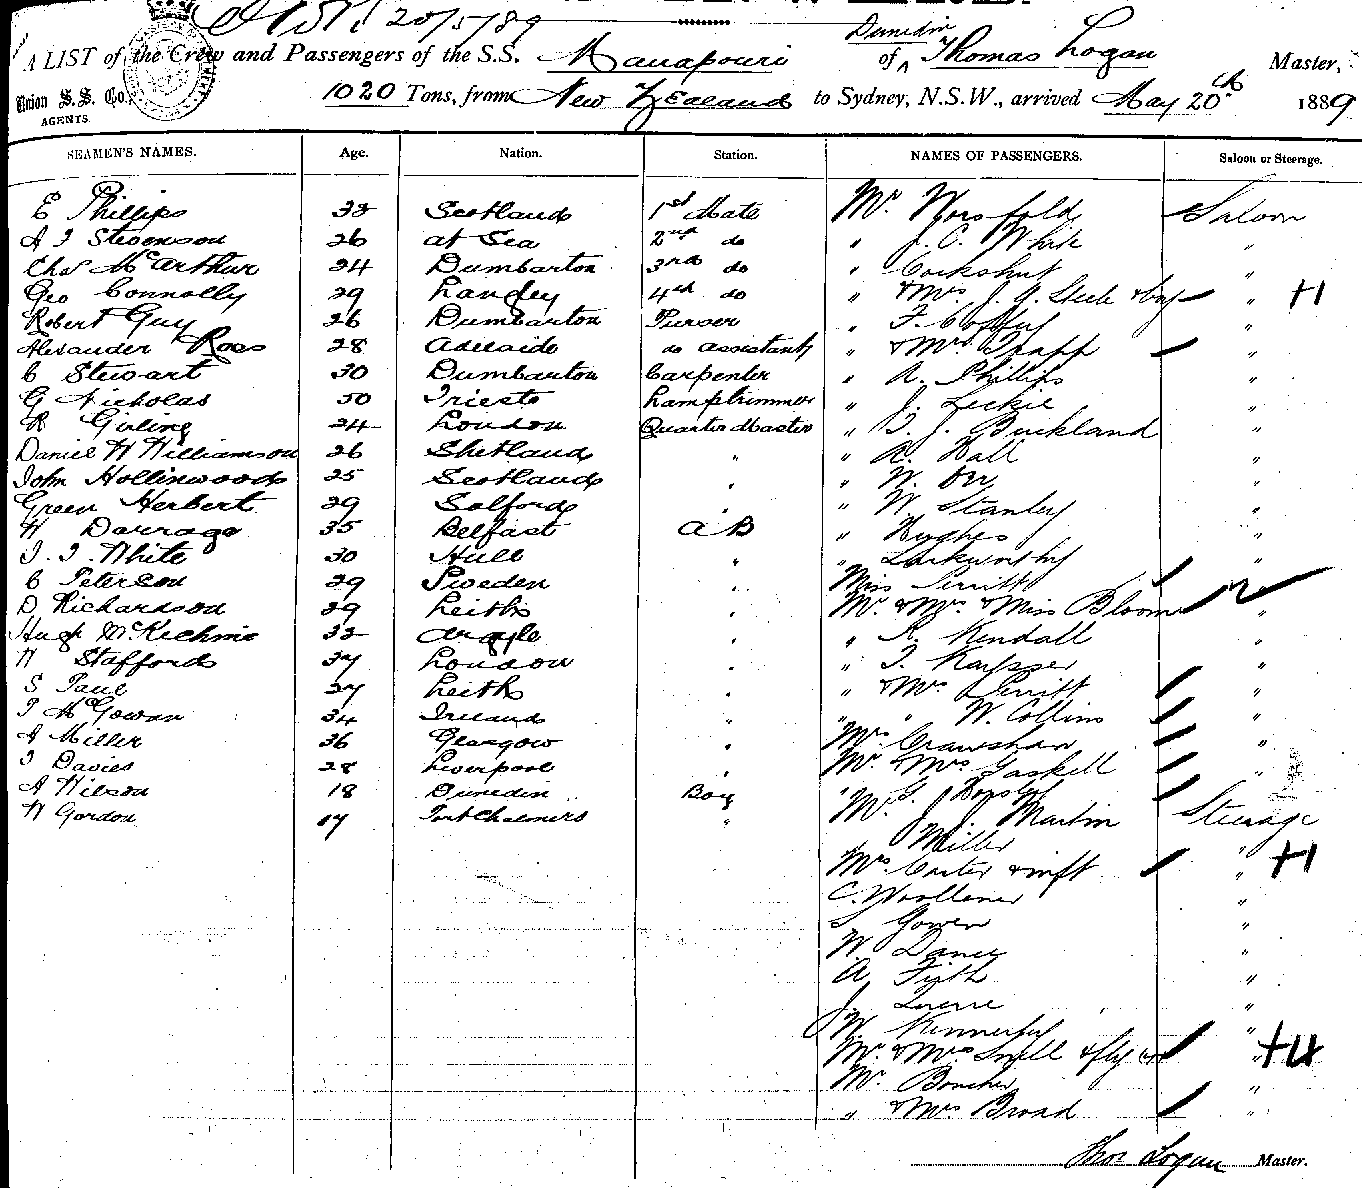 20/5/89
A LIST of the Crew and Passengers of the S.S. Manapouri of Dunedin Thomas Logan Master,
Union S.S. Co., AGENTS. 1020 Tons, from New Zealand to Sydney, N.S.W., arrived May 20th 1889
SEAMEN'S NAMES. Age. Nation. Station. NAMES OF PASSENGERS. Saloon or Steerage.
E Phillips 33 Scotland 1st Mate Mr. Worsfold Saloon
A J Stevenson 26 at Sea 2nd do " J. C. White "
Chas McArthur 24 Dumbarton 3rd do " Cockshut "
Geo Connolly 29 Langley 4th do " & Mrs J. A. Steele & boy " +1
Robert Guy 26 Dumbarton Purser " F. "
Alexander Ross 28 Adelaide do assistant " & Mrs Trapp "
C Stewart 30 Dumbarton Carpenter " A. Phillips "
G Nicholas 50 Trieste Lamptrimmer " J. Leckie "
R Girling 24 London Quarter Master " T. J. Buckland "
Daniel W Williamson 26 Shetland " " A. Hall "
John Hollinwood 25 Scotland " " W. Orr "
Green Herbert 29 Salford " " W. Stanley "
W Darrago 35 Belfast AB " Hughes "
J. J. White 30 Hull " " Larkworthy "
C Peterson 29 Sweden " Miss Perritt "
D. Richardson 29 Leith " Mr. & Mrs. & Miss Bloom "
Hugh McKechnie 33 Argyle " " R. Kendall "
W Stafford 37 London " " T. Kayser "
S Paul 27 Leith " " & Mrs Perritt "
T McGowan 34 Ireland " " " W. Collins "
A Miller 36 Glasgow " Mrs Crawshaw "
J Davies 28 Liverpool " Mr. & Mrs Gaskell "
A Wilson 18 Dunedin Boy " G. "
W Gordon 17 Port Chalmers " Mr. J. J. Martin Steerage
Miller "
Mrs Carter & inft " +1
C. Woollener "
S Gowen "
W. Dancy "
A. Firth "
J. "
W. Kennerley "
Mr. & Mrs Snell & fly " +4
Mr. Boucher "
" & Mrs Broad "
Thos Logan Master.